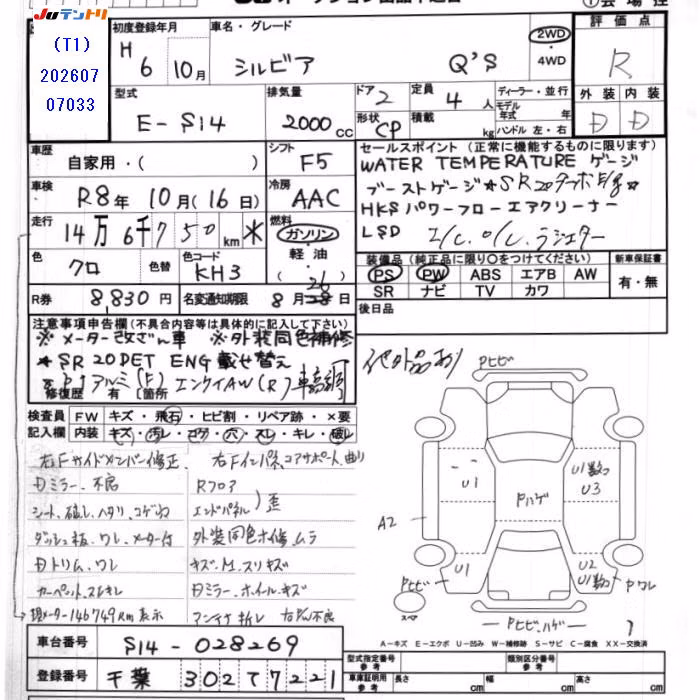 JUテントリ
(T1)
202607
07033
初度登録年月
H 6 10月
車名・グレード
シルビア Q'S
2WD
・4WD
評価点
R
外装 内装
D D
型式
E-S14
排気量
2000cc
ドア 2
定員 4人
形状 CP
積載 kg
ディーラー・並行
モデル年式 年
ハンドル 左・右
車歴
自家用・( )
シフト
F5
車検
R8年10月(16日)
冷房
AAC
走行
14万6千750km *
燃料
ガソリン
・
軽油
・
( )
色
クロ
色替
色コード
KH3
R券 8,830円
名変通知期限 8月26日
セールスポイント(正常に機能するものに限ります)
WATER TEMPERATURE ゲージ
ブーストゲージ★SR20ターボ
HKSパワーフローエアクリーナー
LSD I/C.O/C.ラジエター
装備品(純正品に限り○をつけてください)
PS PW ABS エアB AW
SR ナビ TV カワ
新車保証書
有・無
後日品
注意事項申告欄(不具合内容等は具体的に記入して下さい)
※メーター改ざん車 ※外装同色補修
★SR20DET ENG載せ替え
アルミ(F) エンケイAW(R) 車高調
修復歴 有 [箇所
社外品あり
検査員 FW キズ・飛石・ヒビ割・リペア跡・×要
記入欄 内装 キズ・汚レ・コゲ・穴・スレ・キレ・破レ
右Fサイドメンバー修正、右Fインパネ、コアサポート、曲り
Dミラー不良
Rフロア
エンドパネル)歪
シート、破レ、ヘタリ、コゲ穴
ダッシュ板、ワレ、メーター付
外装同色補修、ムラ
Dトリム、ワレ
キズ、M、スリキズ
カーペット、スレキレ
Dミラー、ホイールキズ
現メーター146749km表示
アンテナ折レ 右PW不良
Pヒビ
U1
U1数ヶ
U3
Pハゲ
A2
Pヒビ
U1
U2
U1数ヶ
Pワレ
スペア
Pヒビ、ハゲ
A−キズ E−エクボ U−凹み W−補修跡 S−サビ C−腐食 XX−交換済
車台番号 S14-028269
登録番号 千葉 302 T 7221
型式指定番号 参考
類別区分番号 参考
車庫証明用 参考 長さ cm 幅 cm 高さ cm